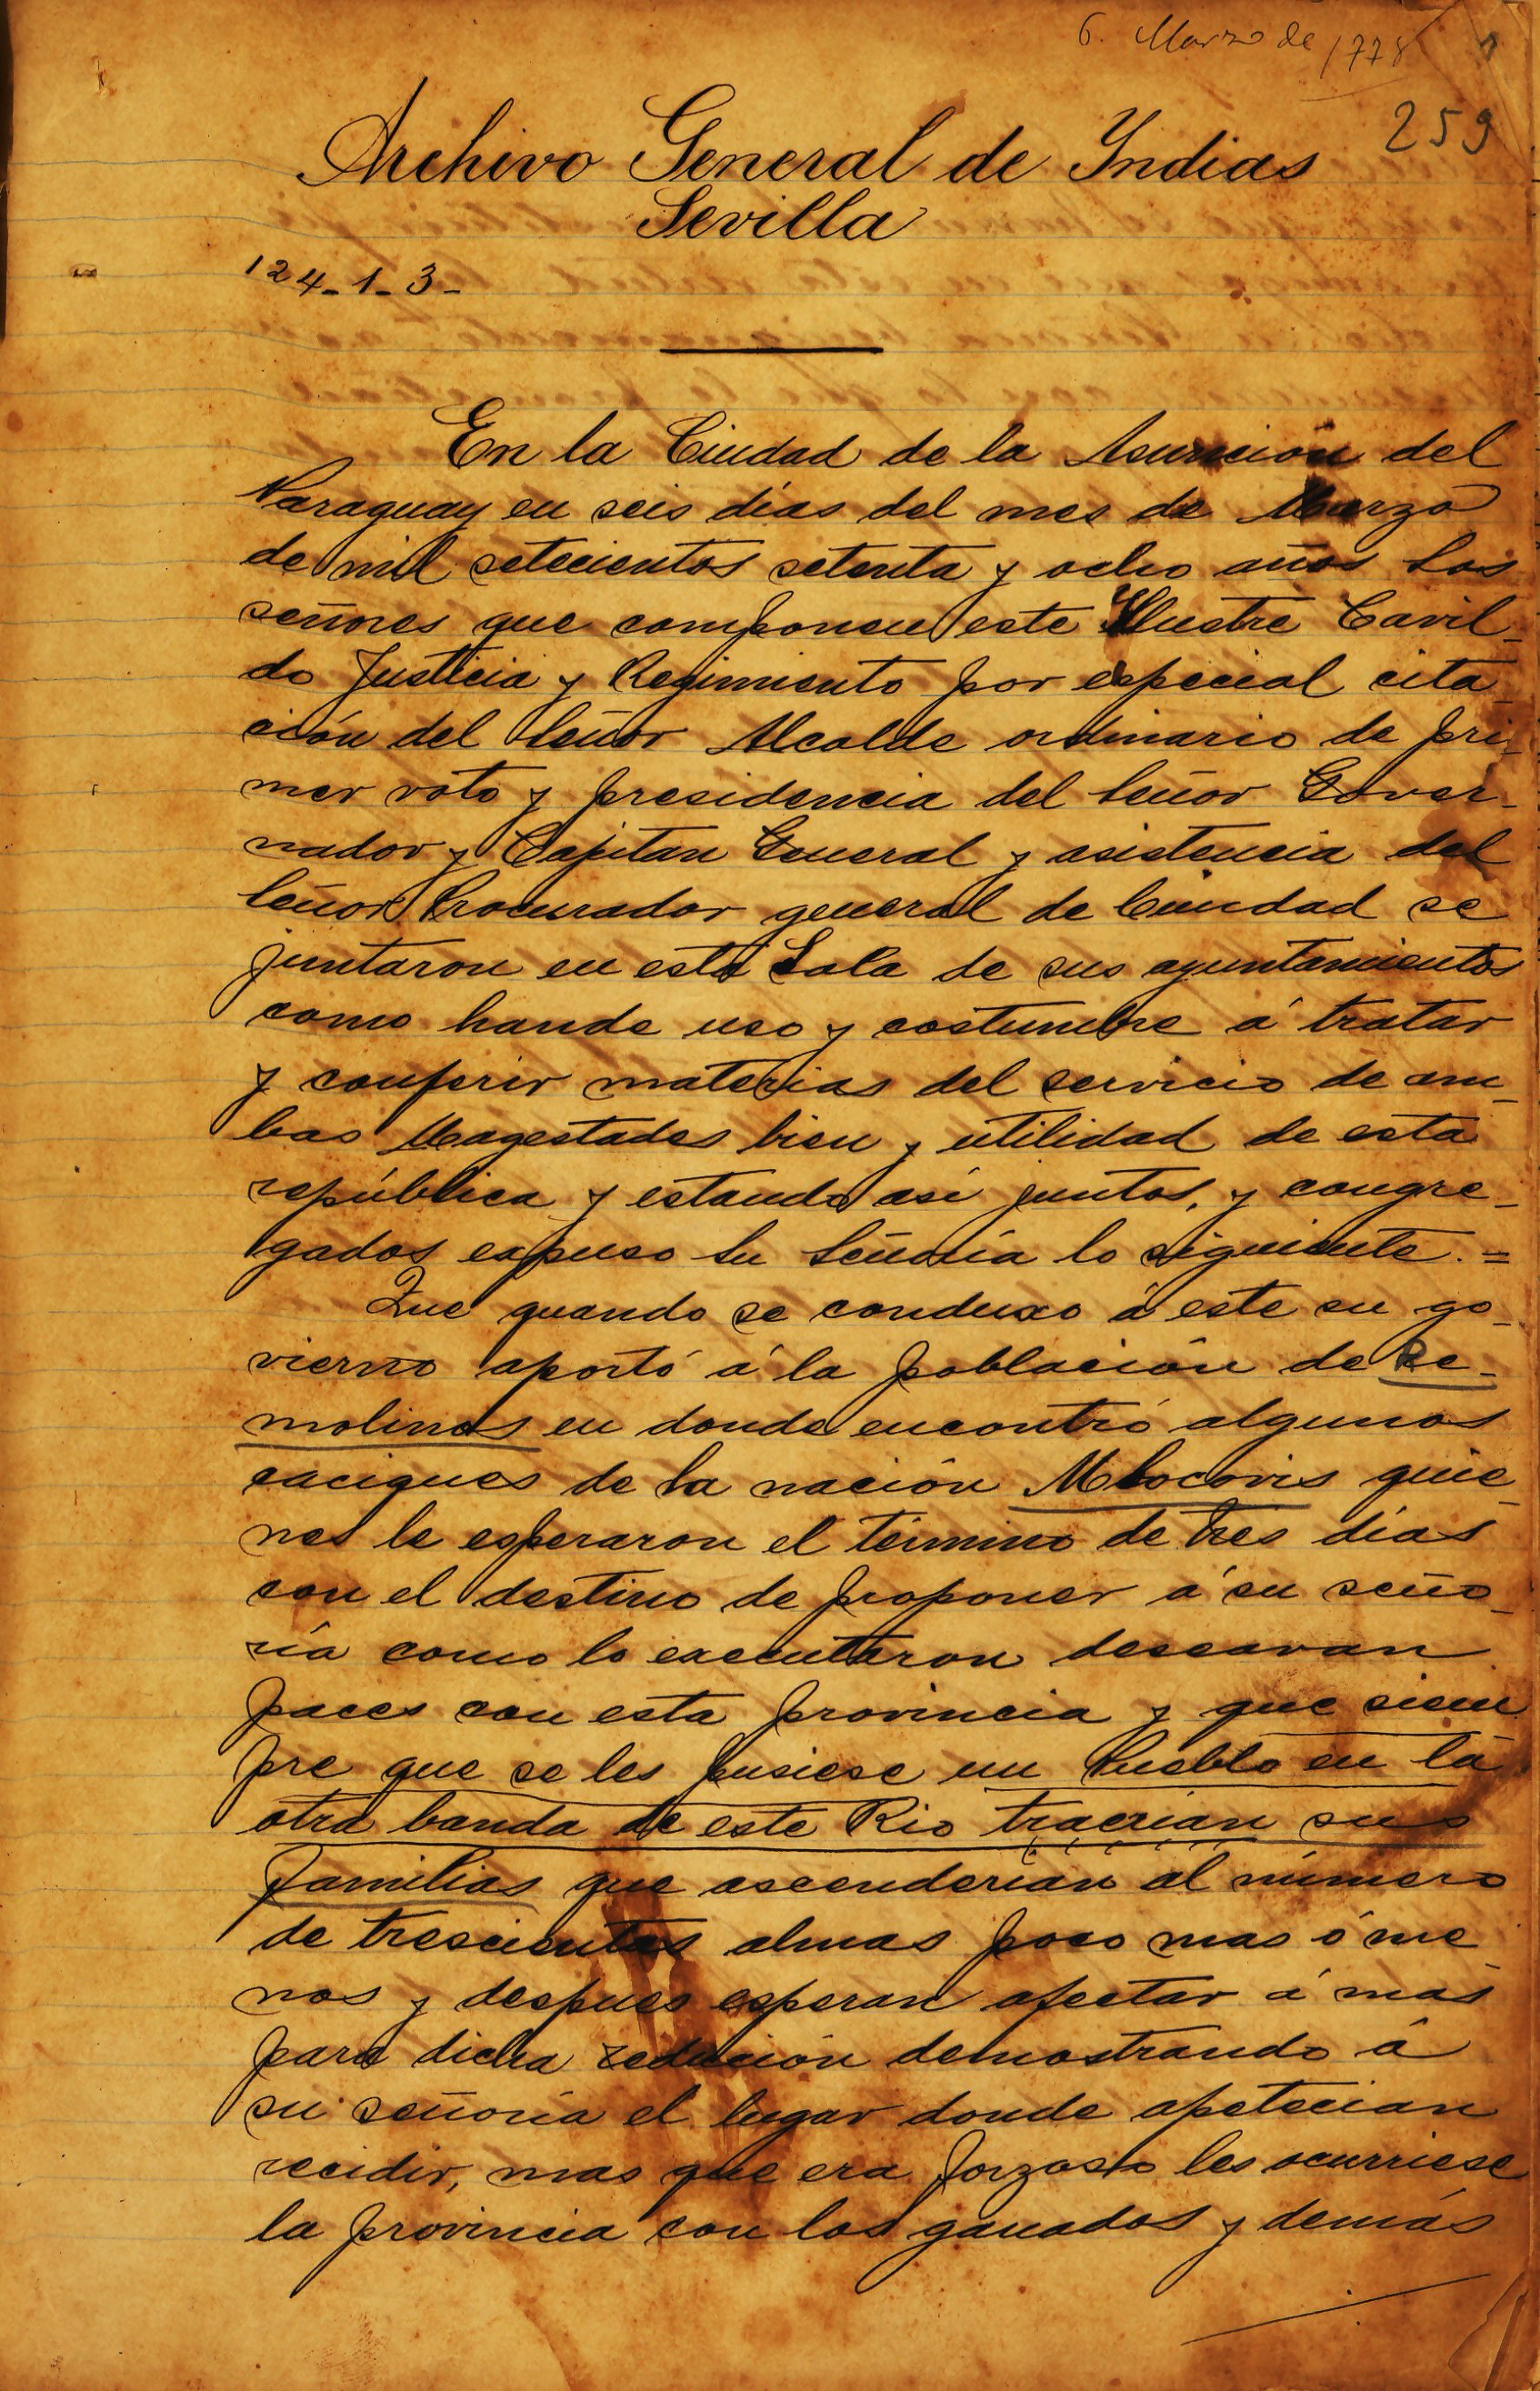 6. Marzo de 1778
259
Archivo General de Indias
Sevilla
124-1-3-
En la Ciudad de la Asunción del
Paraguay en seis días del mes de Marzo
de mil setecientos setenta y ocho años los
señores que componen este Ilustre Cavil-
do Justicia y Regimiento por especial cita-
ción del Señor Alcalde ordinario de pri-
mer voto y presidencia del Señor Gover-
nador y Capitan General y asistencia del
Señor Procurador general de Ciudad se
juntaron en esta Sala de sus ayuntamientos
como hande uso y costumbre á tratar
y conferir materias del servicio de am-
bas Magestades bien y utilidad de esta
república y estando asi juntos, y congre-
gados expuso Su Señoría lo siguiente. =
Que quando se conduxo á este su go-
vierno aportó á la población de Re-
molinos en donde encontró algunos
caciques de la nación Mbocovis quie-
nes le esperaron el término de tres días
con el destino de proponer á su seño-
ría como lo executaron deseavan
paces con esta provincia y que siem
pre que se les pusiese un Pueblo en la
otra banda de este Rio traerían sus
familias que ascenderían al número
de trescientas almas poco mas ó me
nos y despues esperan afectar á mas
para dicha redución demostrando á
su señoria el lugar donde apetecian
recidir, mas que era forzoso les ocurriese
la provincia con los ganados y demás